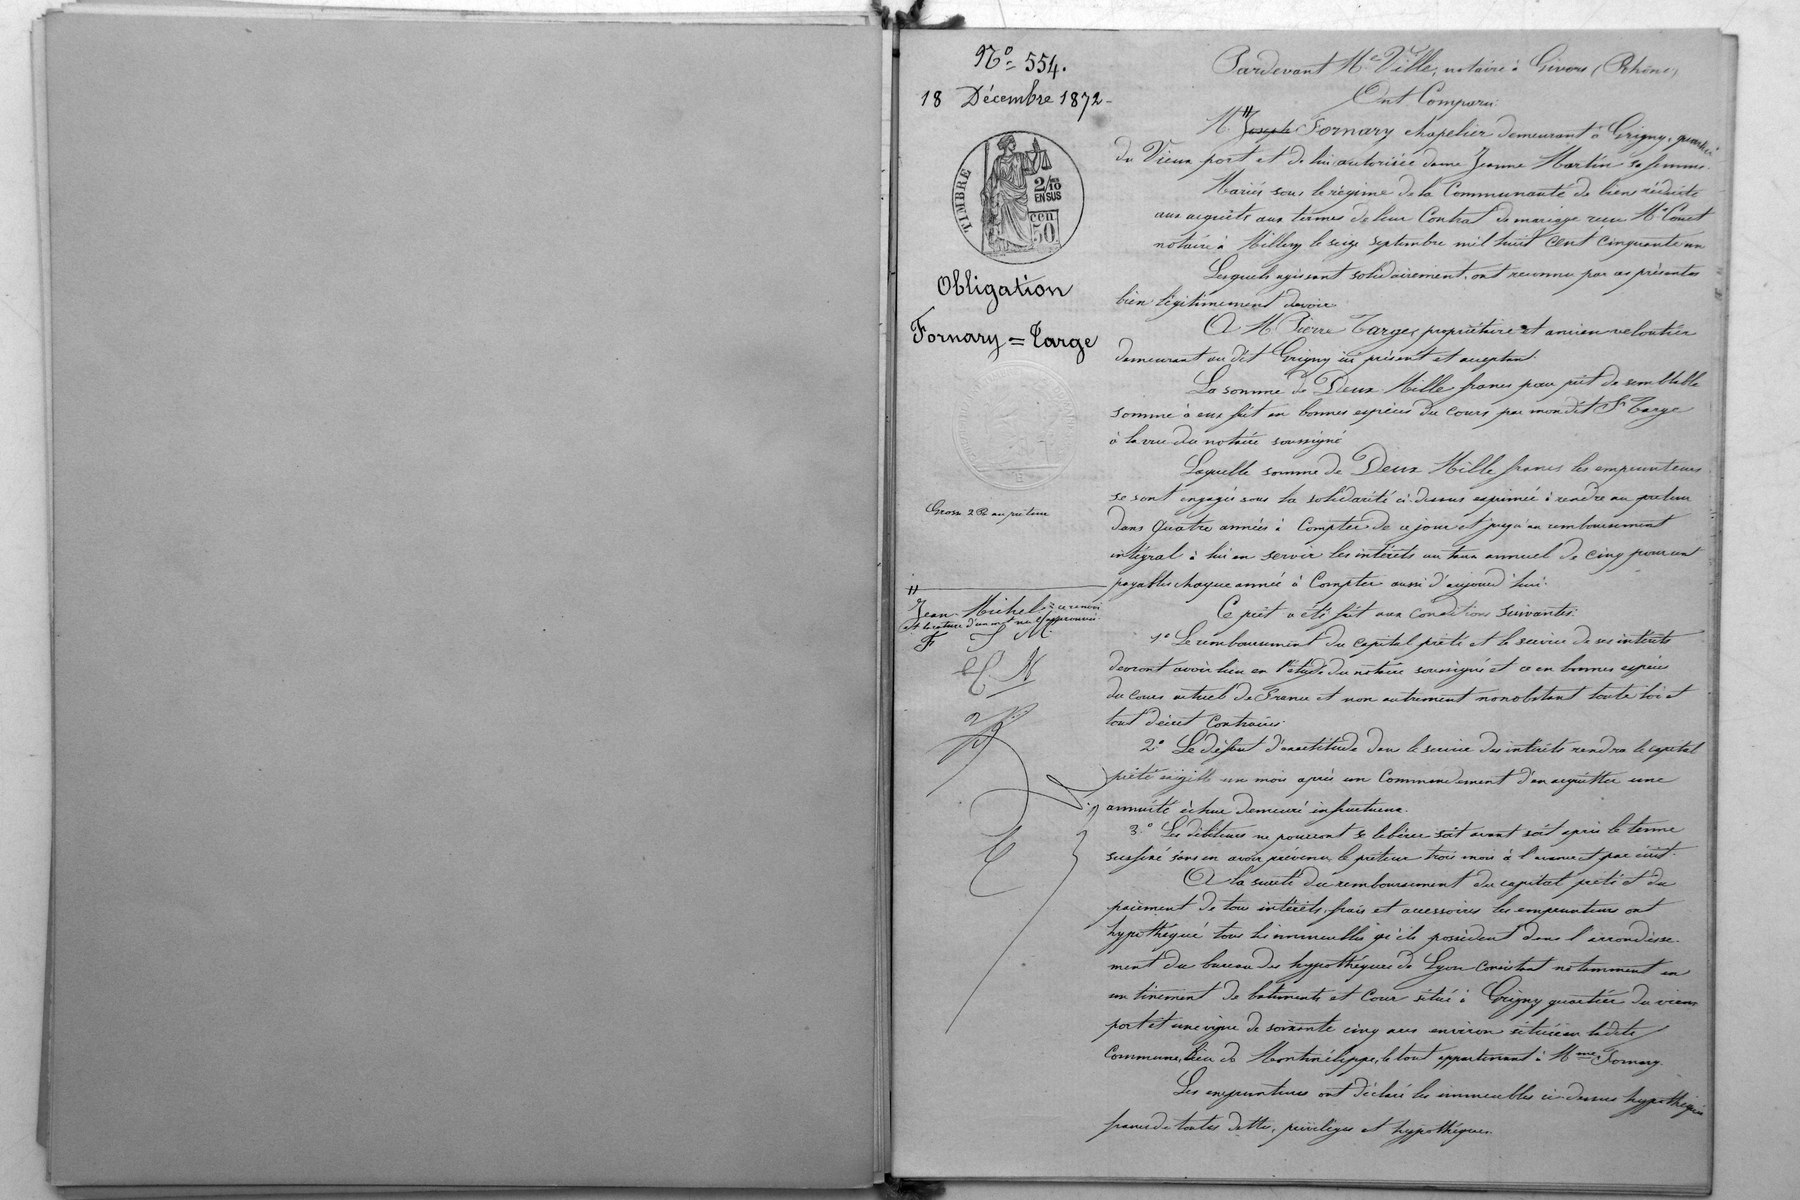 N° 554.
18 Décembre 1872-
TIMBRE
2/10
EN SUS
cen
50
Obligation
Fornary = Targe
Grosse 2 R au prêteur
Jean Michel = ce renvoi
et la rature d'un mot nul approuvés
F J M
Pardevant Me Ville, notaire à Givors (Rhône)
Ont Comparu
M. Joseph Fornary chapelier demeurant à Grigny, quartier
du Vieux port et de lui autorisée dame Jeanne Martin sa femme.
Mariés sous le régime de la Communauté de biens réduite
aux acquêts aux termes de leur Contrat de mariage reçu Me
notaire à Millery le seize septembre mil huit cent cinquante un
Lesquels agissant solidairement, ont reconnu par ces présentes
bien légitimement devoir
A M. Pierre Targe, propriétaire et ancien veloutier
demeurant au dit Grigny ici présent et acceptant.
La somme de Deux Mille francs pour prêt de semblable
somme à eux fait en bonnes espèces du cours par mon dit Sr Targe
à la vue du notaire soussigné
Laquelle somme de Deux Mille francs les emprunteurs
se sont engagés sous la solidarité ci-dessus exprimée à rendre au prêteur
dans quatre années à Compter de ce jour et jusqu'au remboursement
intégral à lui en servir les intérêts au taux annuel de cinq pour cent
payables chaque année à Compter aussi d'aujourd'hui.
Ce prêt a été fait aux conditions suivantes:
1° Le remboursement du capital prêté et le service de ses intérêts
devront avoir lieu en l'étude du notaire soussigné et ce en bonnes espèces
du cours actuel de France et non autrement nonobstant toute loi et
tout décret Contraires.
2° Le défaut d'exactitude dans le service des intérêts rendra le capital
prêté exigible un mois après un Commandement d'en acquitter une
annuité échue demeuré infructueux.
3° Les débiteurs ne pourront se libérer soit avant soit après le terme
susfixé sans en avoir prévenu le prêteur trois mois à l'avance et par écrit.
A la sureté du remboursement du capital prêté et du
paiement de tous intérêts, frais et accessoires les emprunteurs ont
hypothéqué tous les immeubles qu'ils possèdent dans l'arrondisse-
ment du bureau des hypothèques de Lyon consistant notamment en
un tinement de batiments et Cour situé à Grigny quartier du vieux
port et une vigne de soixante cinq ares environ située en la dite
Commune, lieu de le tout appartenant à Mme Fornary.
Les emprunteurs ont déclaré les immeubles ci-dessus hypothéqués
francs de toutes dettes, privilèges et hypothèques.